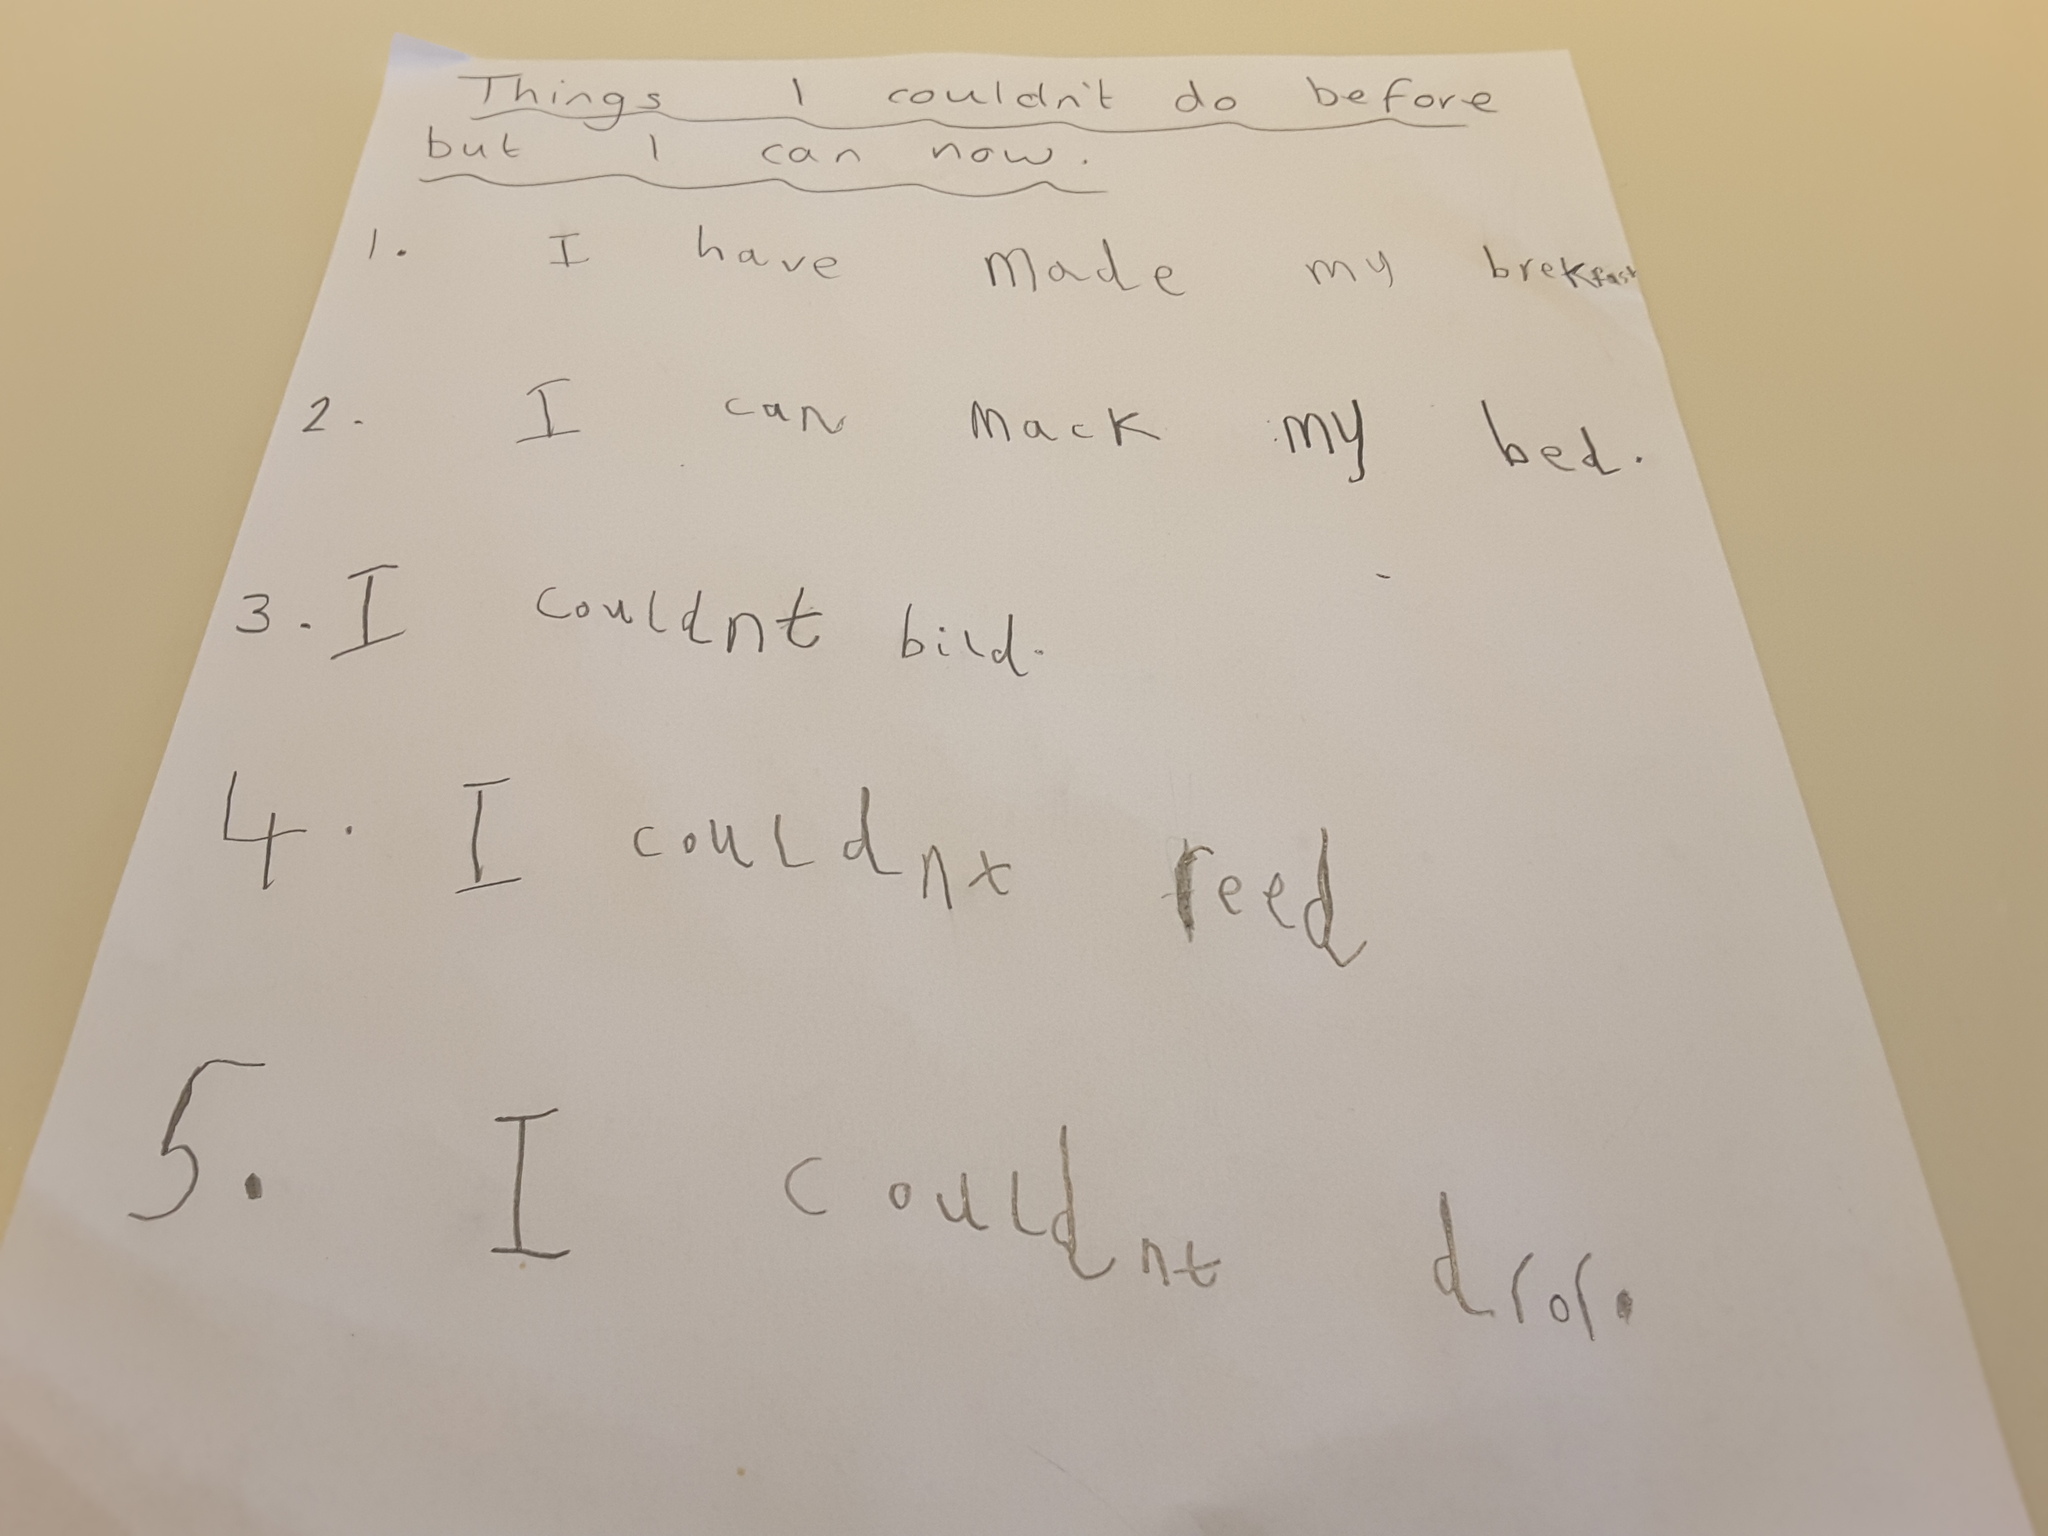 Things I couldn't do before
but I can now.
1. I have made my brekfast
2. I can mack my bed.
3. I couldnt bild.
4. I couldnt reed
5. I couldnt dror.